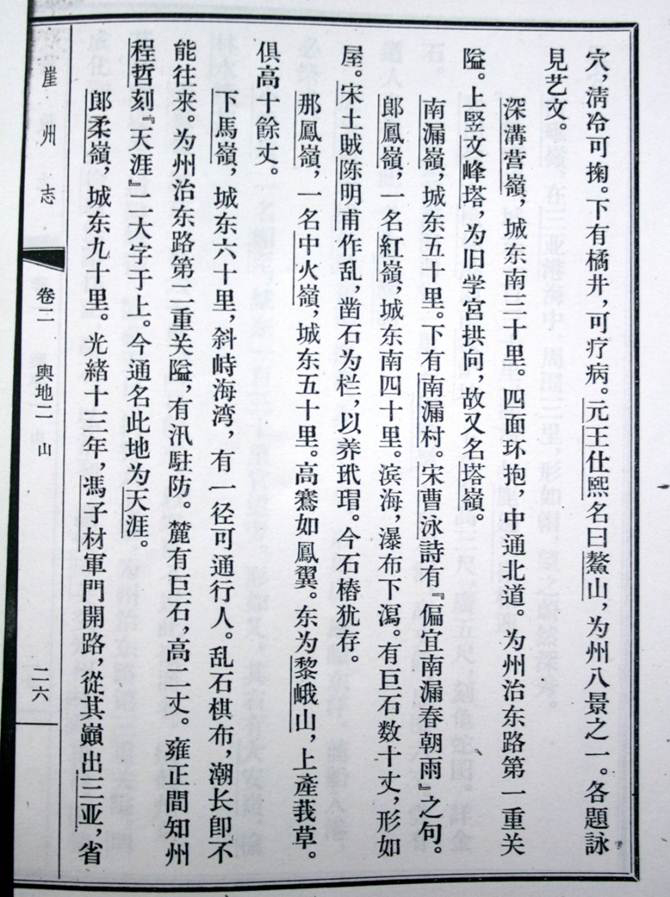 穴，清冷可掬。下有橘井，可疗病。元王仕熙名曰鰲山，为州八景之一。各題詠
見艺文。
深溝营嶺，城东南三十里。四面环抱，中通北道。为州治东路第一重关
隘。上竪文峰塔，为旧学宮拱向，故又名塔嶺。
南漏嶺，城东五十里。下有南漏村。宋曹泳詩有『偏宜南漏春朝雨』之句。
郎鳳嶺，一名紅嶺，城东南四十里。滨海，瀑布下瀉。有巨石数十丈，形如
屋。宋土賊陈明甫作乱，凿石为栏，以养玳瑁。今石椿犹存。
那鳳嶺，一名中火嶺，城东五十里。高騫如鳳翼。东为黎峨山，上產莪草。
俱高十餘丈。
下馬嶺，城东六十里，斜峙海湾，有一径可通行人。乱石棋布，潮长卽不
能往来。为州治东路第二重关隘，有汛駐防。麓有巨石，高二丈。雍正間知州
程哲刻『天涯』二大字于上。今通名此地为天涯。
郎柔嶺，城东九十里。光緒十三年，馮子材軍門開路，從其巔出三亚，省
崖州志
卷二　輿地二　山
二六